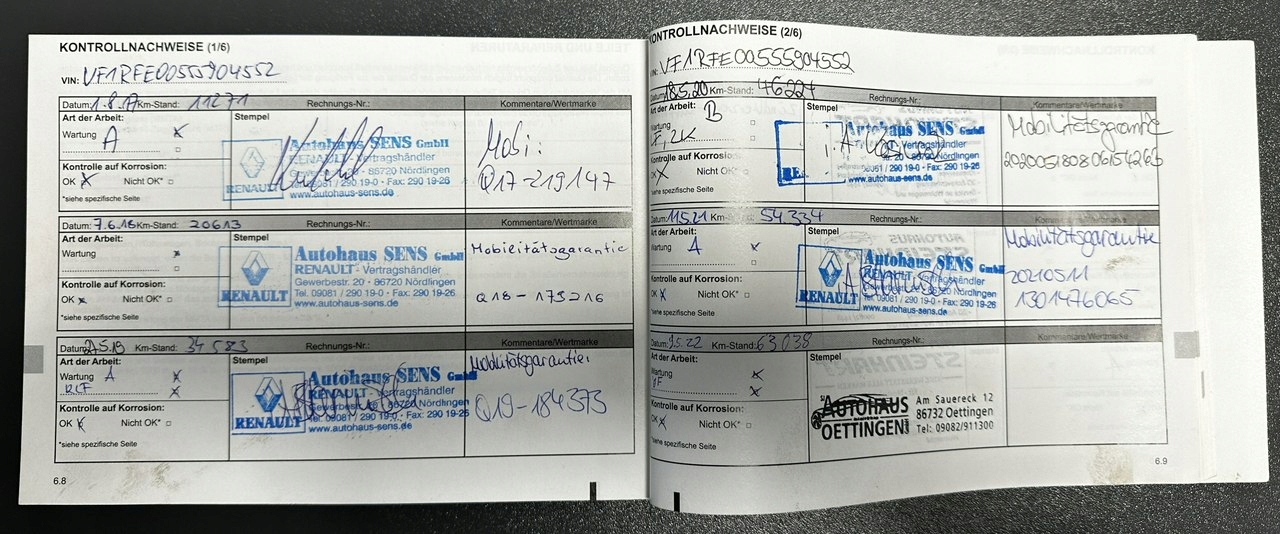 KONTROLLNACHWEISE (1/6)
VIN: VF1RFE00555904552
Datum: 1.8.17 Km-Stand: 11271 Rechnungs-Nr.: Kommentare/Wertmarke
Art der Arbeit: Stempel
Wartung A
Autohaus SENS GmbH
RENAULT - Vertragshändler
86720 Nördlingen
09081 / 290 19-0 · Fax: 290 19-26
www.autohaus-sens.de
RENAULT
Mobi:
Q17-219147
Kontrolle auf Korrosion:
OK Nicht OK*
*siehe spezifische Seite
Datum: 7.6.18 Km-Stand: 20613 Rechnungs-Nr.: Kommentare/Wertmarke
Art der Arbeit: Stempel
Wartung
Autohaus SENS GmbH
RENAULT - Vertragshändler
Gewerbestr. 20 · 86720 Nördlingen
Tel. 09081 / 290 19-0 · Fax: 290 19-26
www.autohaus-sens.de
RENAULT
Mobilitätsgarantie
Q18-173216
Kontrolle auf Korrosion:
OK Nicht OK*
*siehe spezifische Seite
Datum: 27.5.19 Km-Stand: 34583 Rechnungs-Nr.: Kommentare/Wertmarke
Art der Arbeit: Stempel
Wartung A
Autohaus SENS GmbH
RENAULT - Vertragshändler
86720 Nördlingen
Tel. 09081 / 290 19-0 · Fax: 290 19-26
www.autohaus-sens.de
RENAULT
Mobilitätsgarantie:
Q19-184373
Kontrolle auf Korrosion:
OK Nicht OK*
*siehe spezifische Seite
6.8
KONTROLLNACHWEISE (2/6)
VF1RFE00555904552
Datum: 18.5.20 Km-Stand: 46227 Rechnungs-Nr.: Kommentare/Wertmarke
Art der Arbeit: B Stempel
Wartung
Autohaus SENS GmbH
Vertragshändler
86720 Nördlingen
09081 / 290 19-0 · Fax: 290 19-26
www.autohaus-sens.de
Mobilitätsgarantie
Kontrolle auf Korrosion
OK Nicht OK*
*siehe spezifische Seite
Datum: 11.5.21 Km-Stand: 54334 Rechnungs-Nr.: Kommentare/Wertmarke
Art der Arbeit: Stempel
Wartung A
Autohaus SENS GmbH
RENAULT - Vertragshändler
86720 Nördlingen
09081 / 290 19-0 · Fax: 290 19-26
www.autohaus-sens.de
RENAULT
Mobilitätsgarantie
20210511
1301476065
Kontrolle auf Korrosion:
OK Nicht OK*
*siehe spezifische Seite
Datum: 9.5.22 Km-Stand: 63038 Rechnungs-Nr.: Kommentare/Wertmarke
Art der Arbeit: Stempel
Wartung
AUTOHAUS OETTINGEN
Am Sauereck 12
86732 Oettingen
Tel: 09082/911300
Kontrolle auf Korrosion:
OK Nicht OK*
*siehe spezifische Seite
6.9